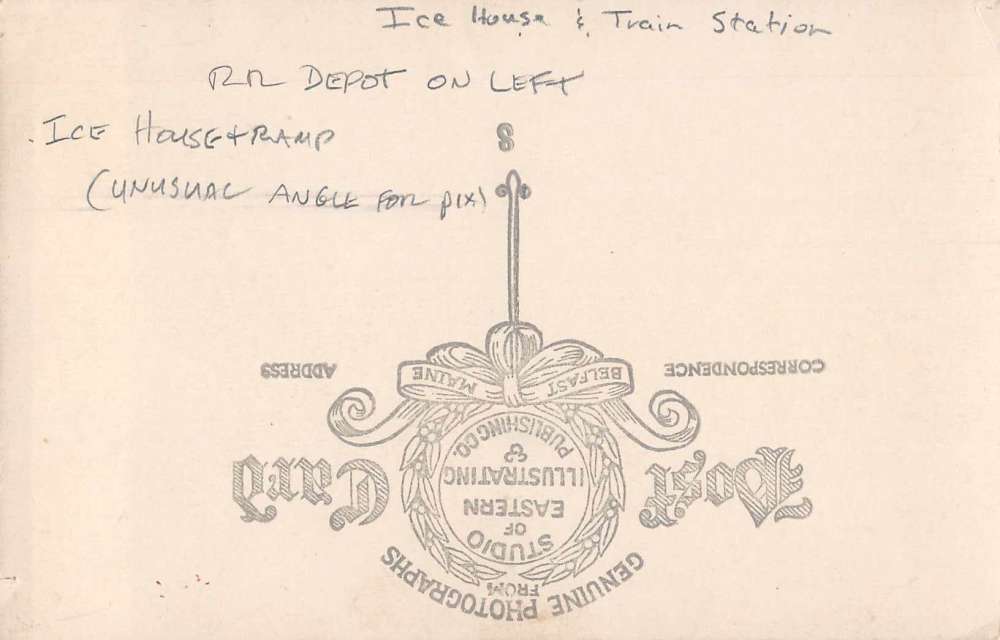 Ice House & Train Station
RR DEPOT ON LEFT
ICE HOUSE + RAMP
(UNUSUAL ANGLE FOR PIX)
GENUINE PHOTOGRAPHS
FROM
STUDIO
OF
EASTERN
ILLUSTRATING
&
PUBLISHING CO.
BELFAST MAINE
Post Card
CORRESPONDENCE
ADDRESS